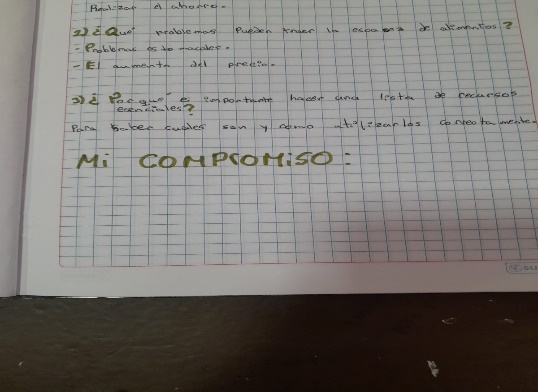 Realizar el ahorro.
2) ¿Qué problemas Pueden traer la escases de alimentos?
- Problemas estomacales.
- El aumento del precio.
3) ¿Por qué es importante hacer una lista de recursos
esenciales?
Para saber cuales son y como utilizarlos correctamente.
Mi COMPROMiSO: